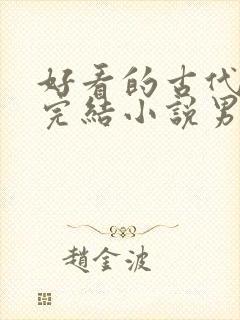 好看的古代
完結小說男
趙金波